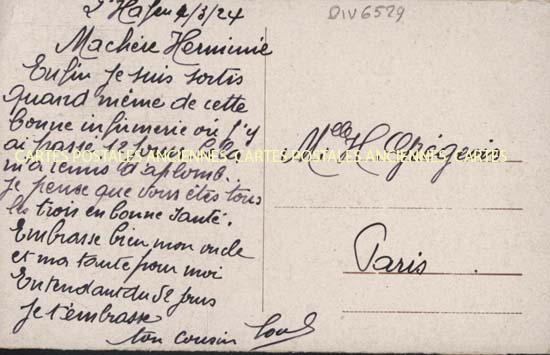 4/3/24
Ma chère Herminie
Enfin je suis sortis
quand même de cette
bonne infirmerie où j'y
ai passé 12 jours
m'a remis d'aplomb.
Je pense que vous êtes tous
les trois en bonne santé.
Embrasse bien mon oncle
et ma tante pour moi
En tendant du
Je t'embrasse
ton cousin
DIV6529
Mlle H
Paris
CARTES POSTALES ANCIENNES CARTES POSTALES ANCIENNES CARTES